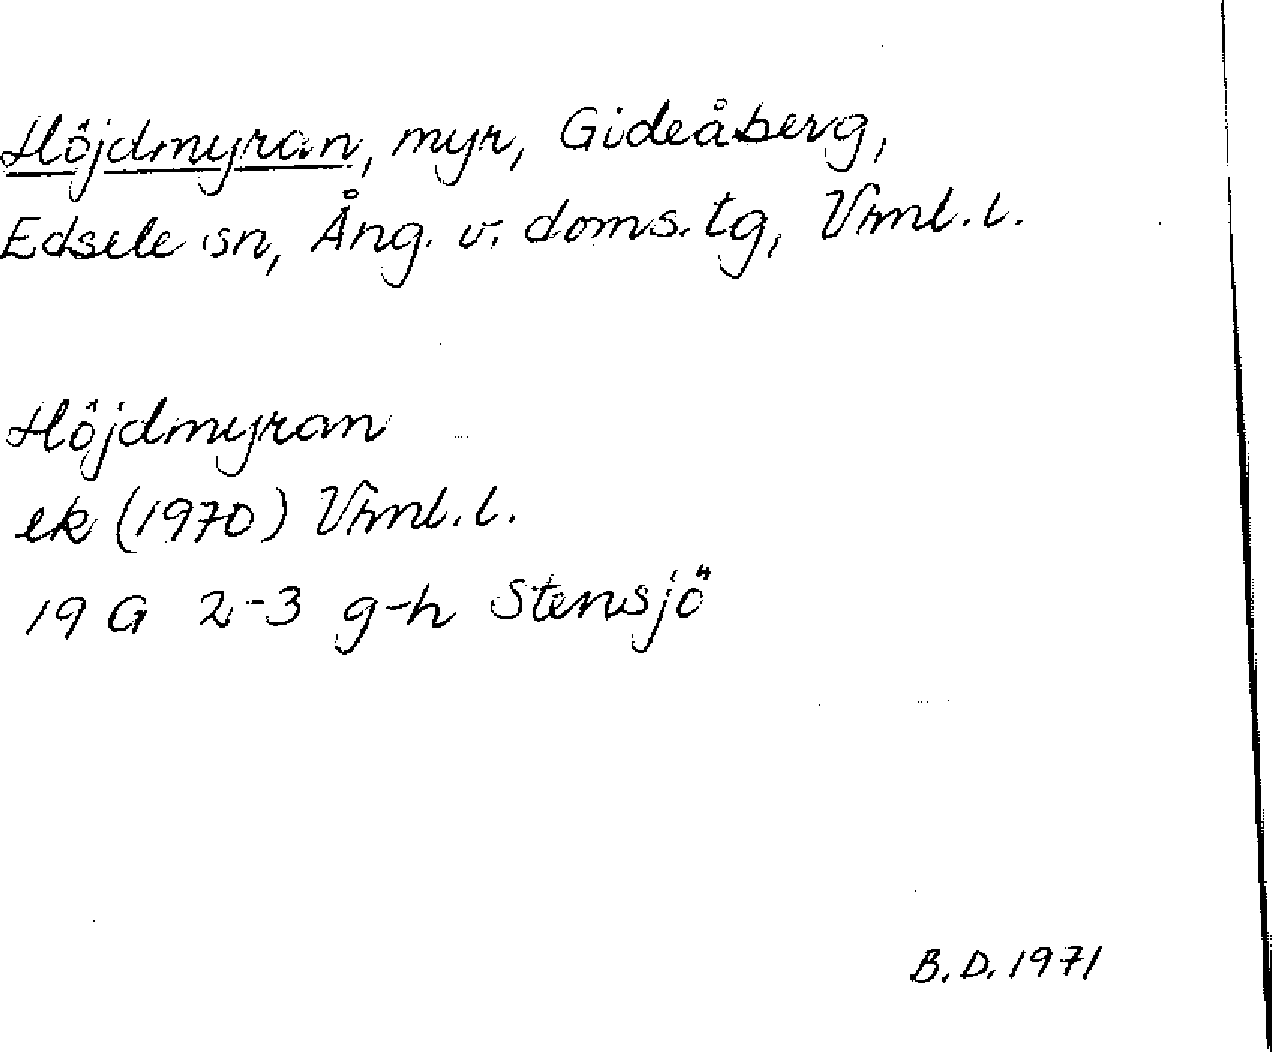 Höjdmyran, myr, Gideåberg,
Edsele sn, Ång. v. doms. tg, Vrnl. l.
Höjdmyran
ek (1970) Vrnl. l.
19 G 2-3 g-h Stensjö
B. D. 1971